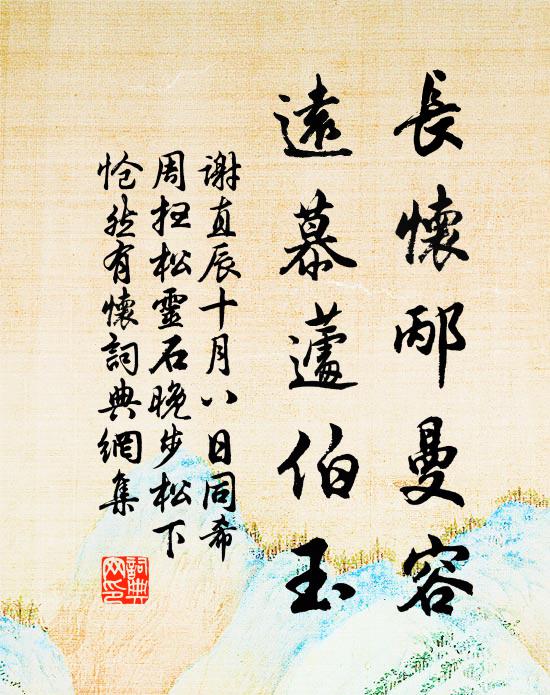 長懷邴曼容
遠慕蘧伯玉
謝直辰十月八日同希
周抂松靈石晚步松下
怆然有懷詞典網集
詞典
网印